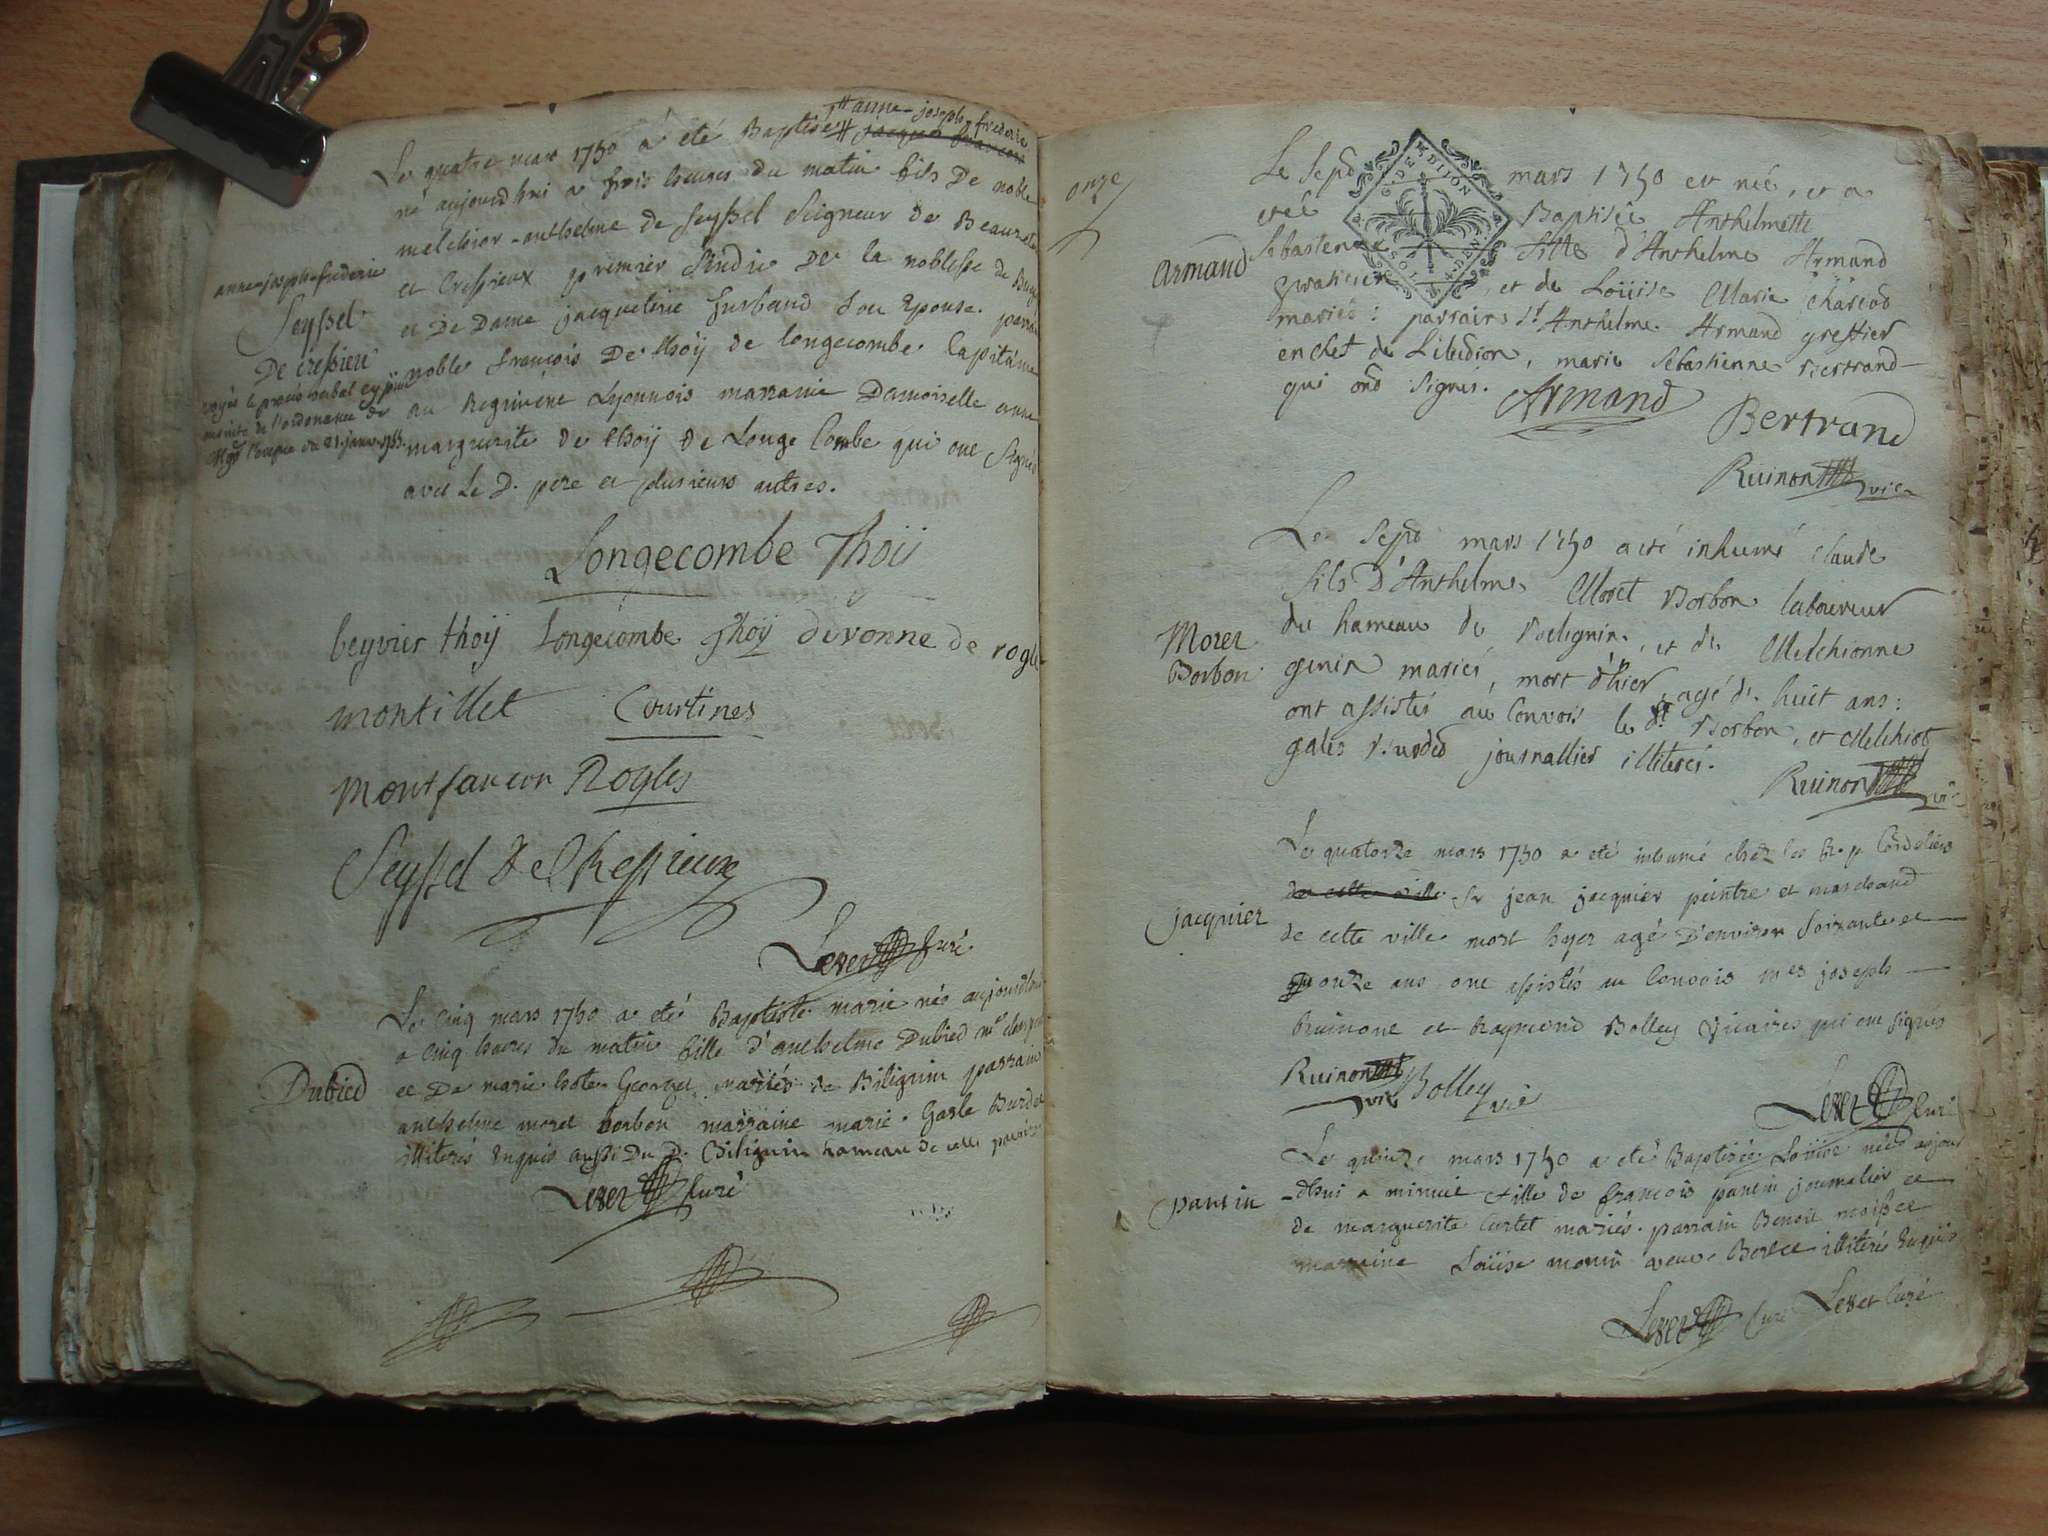 Le quatre mars 1750 a été Baptisé # anne-joseph-frederic
# jacques francois
né aujourdhui a trois heures du matin fils De noble
melchior-anthelme de Seyssel Seigneur de Beauretour
anne-joseph-frederic
et Cressieux premier Sindic De la noblesse de Bugey
Seyssel
et De Dame jacqueline hurbaud Son Epouse. parrain
De cressieu
noble francois De thoÿ de longecombe Capitaine
voyés le procès verbal cy joint
au Regiment Lyonnois marraine Damoiselle anne
ensuite de l'ordonance de
Mgr l'eveque du 21. janv. 1783.
marguerite de thoÿ de Longe Combe qui ont Signé
avec Le D. pere et plusieurs autres.
Longecombe Thoÿ
beyvier thoÿ Longecombe Thoÿ divonne de rogles
montillet Courtines
montfaucon Rogles
Seyssel de Chessieux
Levet Curé
Le Cinq mars 1750 a eté Baptisée marie née aujourdhui
a cinq heures du matin fille d'anthelme Dubied
Dubied
et De marie George mariés de Biliginin parrain
anthelme moret borbon marraine marie Burdet
illiterés Enquis aussi Du D. Biliginin hameau de cette paroisse
Levet Curé
onze
Le Sept mars 1750 est née, et a
eté Baptisée Anthelmette
Sebastienne fille d'Anthelme Armand
Armand
praticien, et de Loüise Marie
mariés: parrain Sr Anthelme Armand greffier
en chef de L'Election, marie Sebastienne Bertrand
qui ont Signés. Armand
Bertrand
Ruinon vic
Le Sept mars 1750 a eté inhumé claude
fils D'Anthelme Moret Borbon laboureur
du hameau de Biliginin, et de Melchionne
Moret
Borbon
genin mariés, mort d'hier, agé de huit ans:
ont assistés au Convois le dt Borbon, et Melchiot
journallier illiterés.
Ruinon vic
Le quatorze mars 1750 a eté inhumé chez les R. p. Cordeliers
de cette ville Sr jean jacquier peintre et marchand
jacquier
de cette ville mort hyer agé D'environ Soixante et
onze ans ont assistés au Convois mes joseph
Ruinont et Raymond Bolley Vicaires qui ont signés
Ruinon vic Bolley vic
Levet Curé
Le quinze mars 1750 a eté Baptisée Loüise née aujour
-dhui a minuit fille de francois pantin journalier et
pantin
de marguerite Curtet mariés. parrain Benoit
marraine Loüise monin veuve illiterés Enquis
Levet Curé Levet Curé